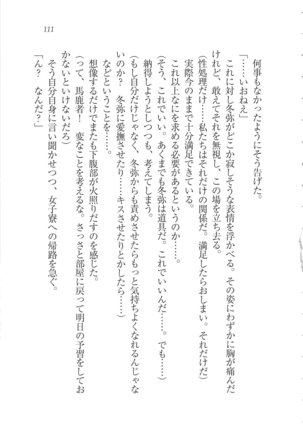 111
何事もなかったようにそう告げた。
「いいおねえ」
これに対し冬弥がどこか寂しそうな表情を浮かべる。その姿にわずかに胸が痛んだ
けれど、敢えてそれを無視し、この場を立ち去る。
（性処理だけ……私たちはそれだけの関係だ。満足したらおしまい。それだけだ）
実際今のままで十分満足できている。
これ以上なにを求める必要があるというのか……。
（そう、これでいい。あくまでも冬弥は道具だ。これでいいんだ……。でも……）
納得しようとしつつも、考えてしまう。
（自分だけじゃなく、冬弥からも責めさせたらもっと気持ちよくなれるんじゃな
いのか？　冬弥に愛撫させたり……キスさせたりとかしたら……）
などということを……。
想像するだけでまたも下腹部が火照りだすのを感じた。
（って、馬鹿者！　変なことを考えるな。さっさと部屋に戻って明日の予習をしてお
かないといけないだろ）
そう自分自身に言い聞かせつつ、女子寮への帰路を急ぐ。
「ん？　なんだ？」